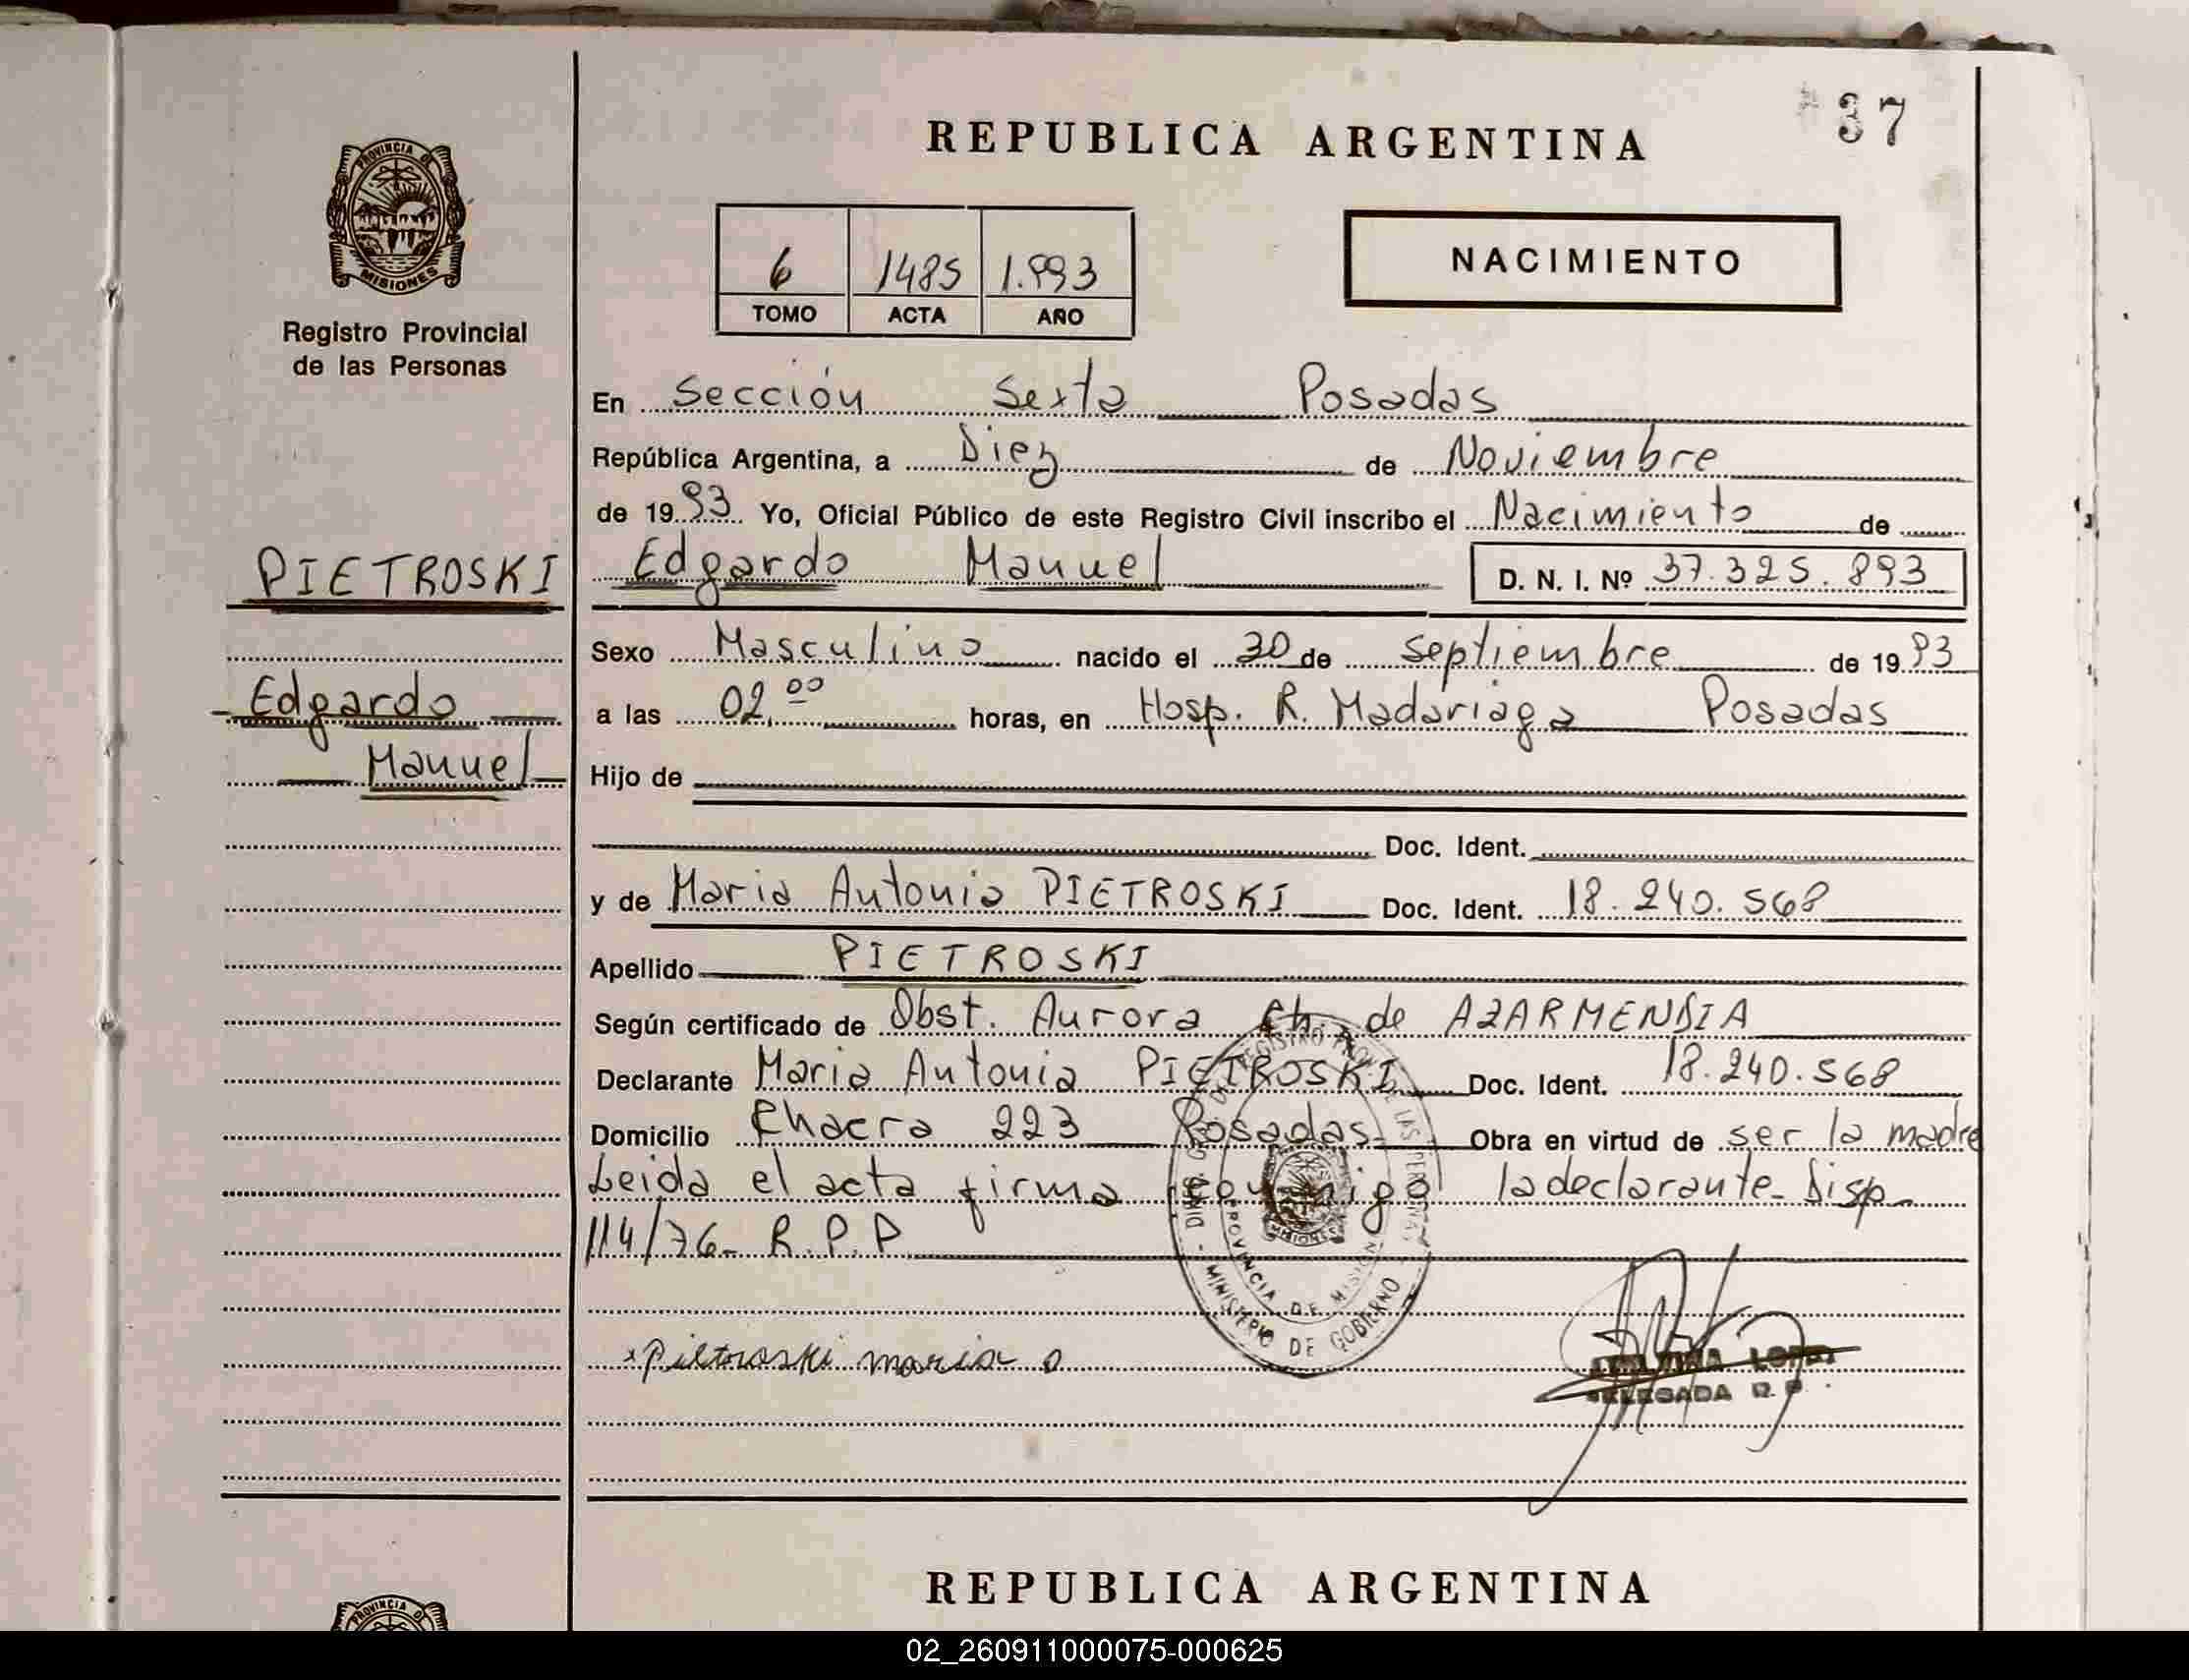 37
REPUBLICA ARGENTINA
PROVINCIA DE
MISIONES
Registro Provincial
de las Personas
6 1485 1.993
TOMO ACTA AÑO
NACIMIENTO
En Sección Sexta Posadas
República Argentina, a Diez de Noviembre
de 1993 Yo, Oficial Público de este Registro Civil inscribo el Nacimiento de
PIETROSKI
Edgardo Manuel D. N. I. Nº 37.325.893
Sexo Masculino nacido el 30 de septiembre de 1993
Edgardo
Manuel
a las 02,00 horas, en Hosp. R. Madariaga Posadas
Hijo de
Doc. Ident.
y de Maria Antonia PIETROSKI Doc. Ident. 18.240.568
Apellido PIETROSKI
Según certificado de Obst. Aurora Ch. de AZARMENDIA
Declarante Maria Antonia PIETROSKI Doc. Ident. 18.240.568
Domicilio Chacra 223 Posadas Obra en virtud de ser la madre
Leida el acta firma conmigo la declarante. Disp.
114/76- R.P.P
MINISTERIO DE GOBIERNO
PROVINCIA DE MISIONES
Pietroski maria a
LOPEZ
DELEGADA R.P.
REPUBLICA ARGENTINA
PROVINCIA DE
02_260911000075-000625